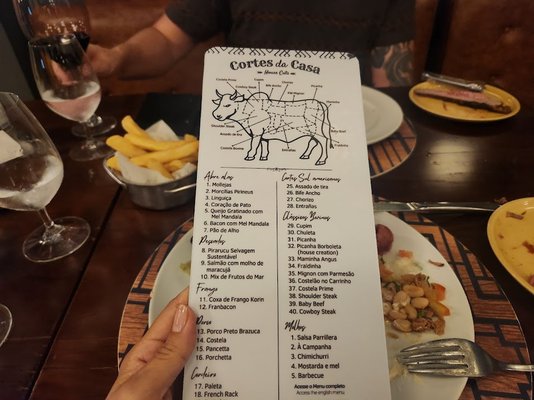 Cortes da Casa
House Cuts
Costela Prime
Cupim
Bife Ancho
Chorizo
Cowboy Steak
Mignon
Picanha
Fraldinha
Shoulder Steak
Assado de tira
Costela
Baby Beef
Entrañas
Abre alas
1. Mollejas
2. Morcillas Pirineus
3. Linguiça
4. Coração de Pato
5. Queijo Gratinado com
Mel Mandala
6. Bacon com Mel Mandala
7. Pão de Alho
Pescados
8. Pirarucu Selvagem
Sustentável
9. Salmão com molho de
maracujá
10. Mix de Frutos do Mar
Frango
11. Coxa de Frango Korin
12. Franbacon
Porco
13. Porco Preto Brazuca
14. Costela
15. Pancetta
16. Porchetta
Cordeiro
17. Paleta
18. French Rack
Cortes Sul americanos
25. Assado de tira
26. Bife Ancho
27. Chorizo
28. Entrañas
Clássicos Bovinos
29. Cupim
30. Chuleta
31. Picanha
32. Picanha Borboleta
(house creation)
33. Maminha Angus
34. Fraldinha
35. Mignon com Parmesão
36. Costelão no Carrinho
37. Costela Prime
38. Shoulder Steak
39. Baby Beef
40. Cowboy Steak
Molhos
1. Salsa Parrillera
2. À Campanha
3. Chimichurri
4. Mostarda e mel
5. Barbecue
Acesse o Menu completo
Access the english menu